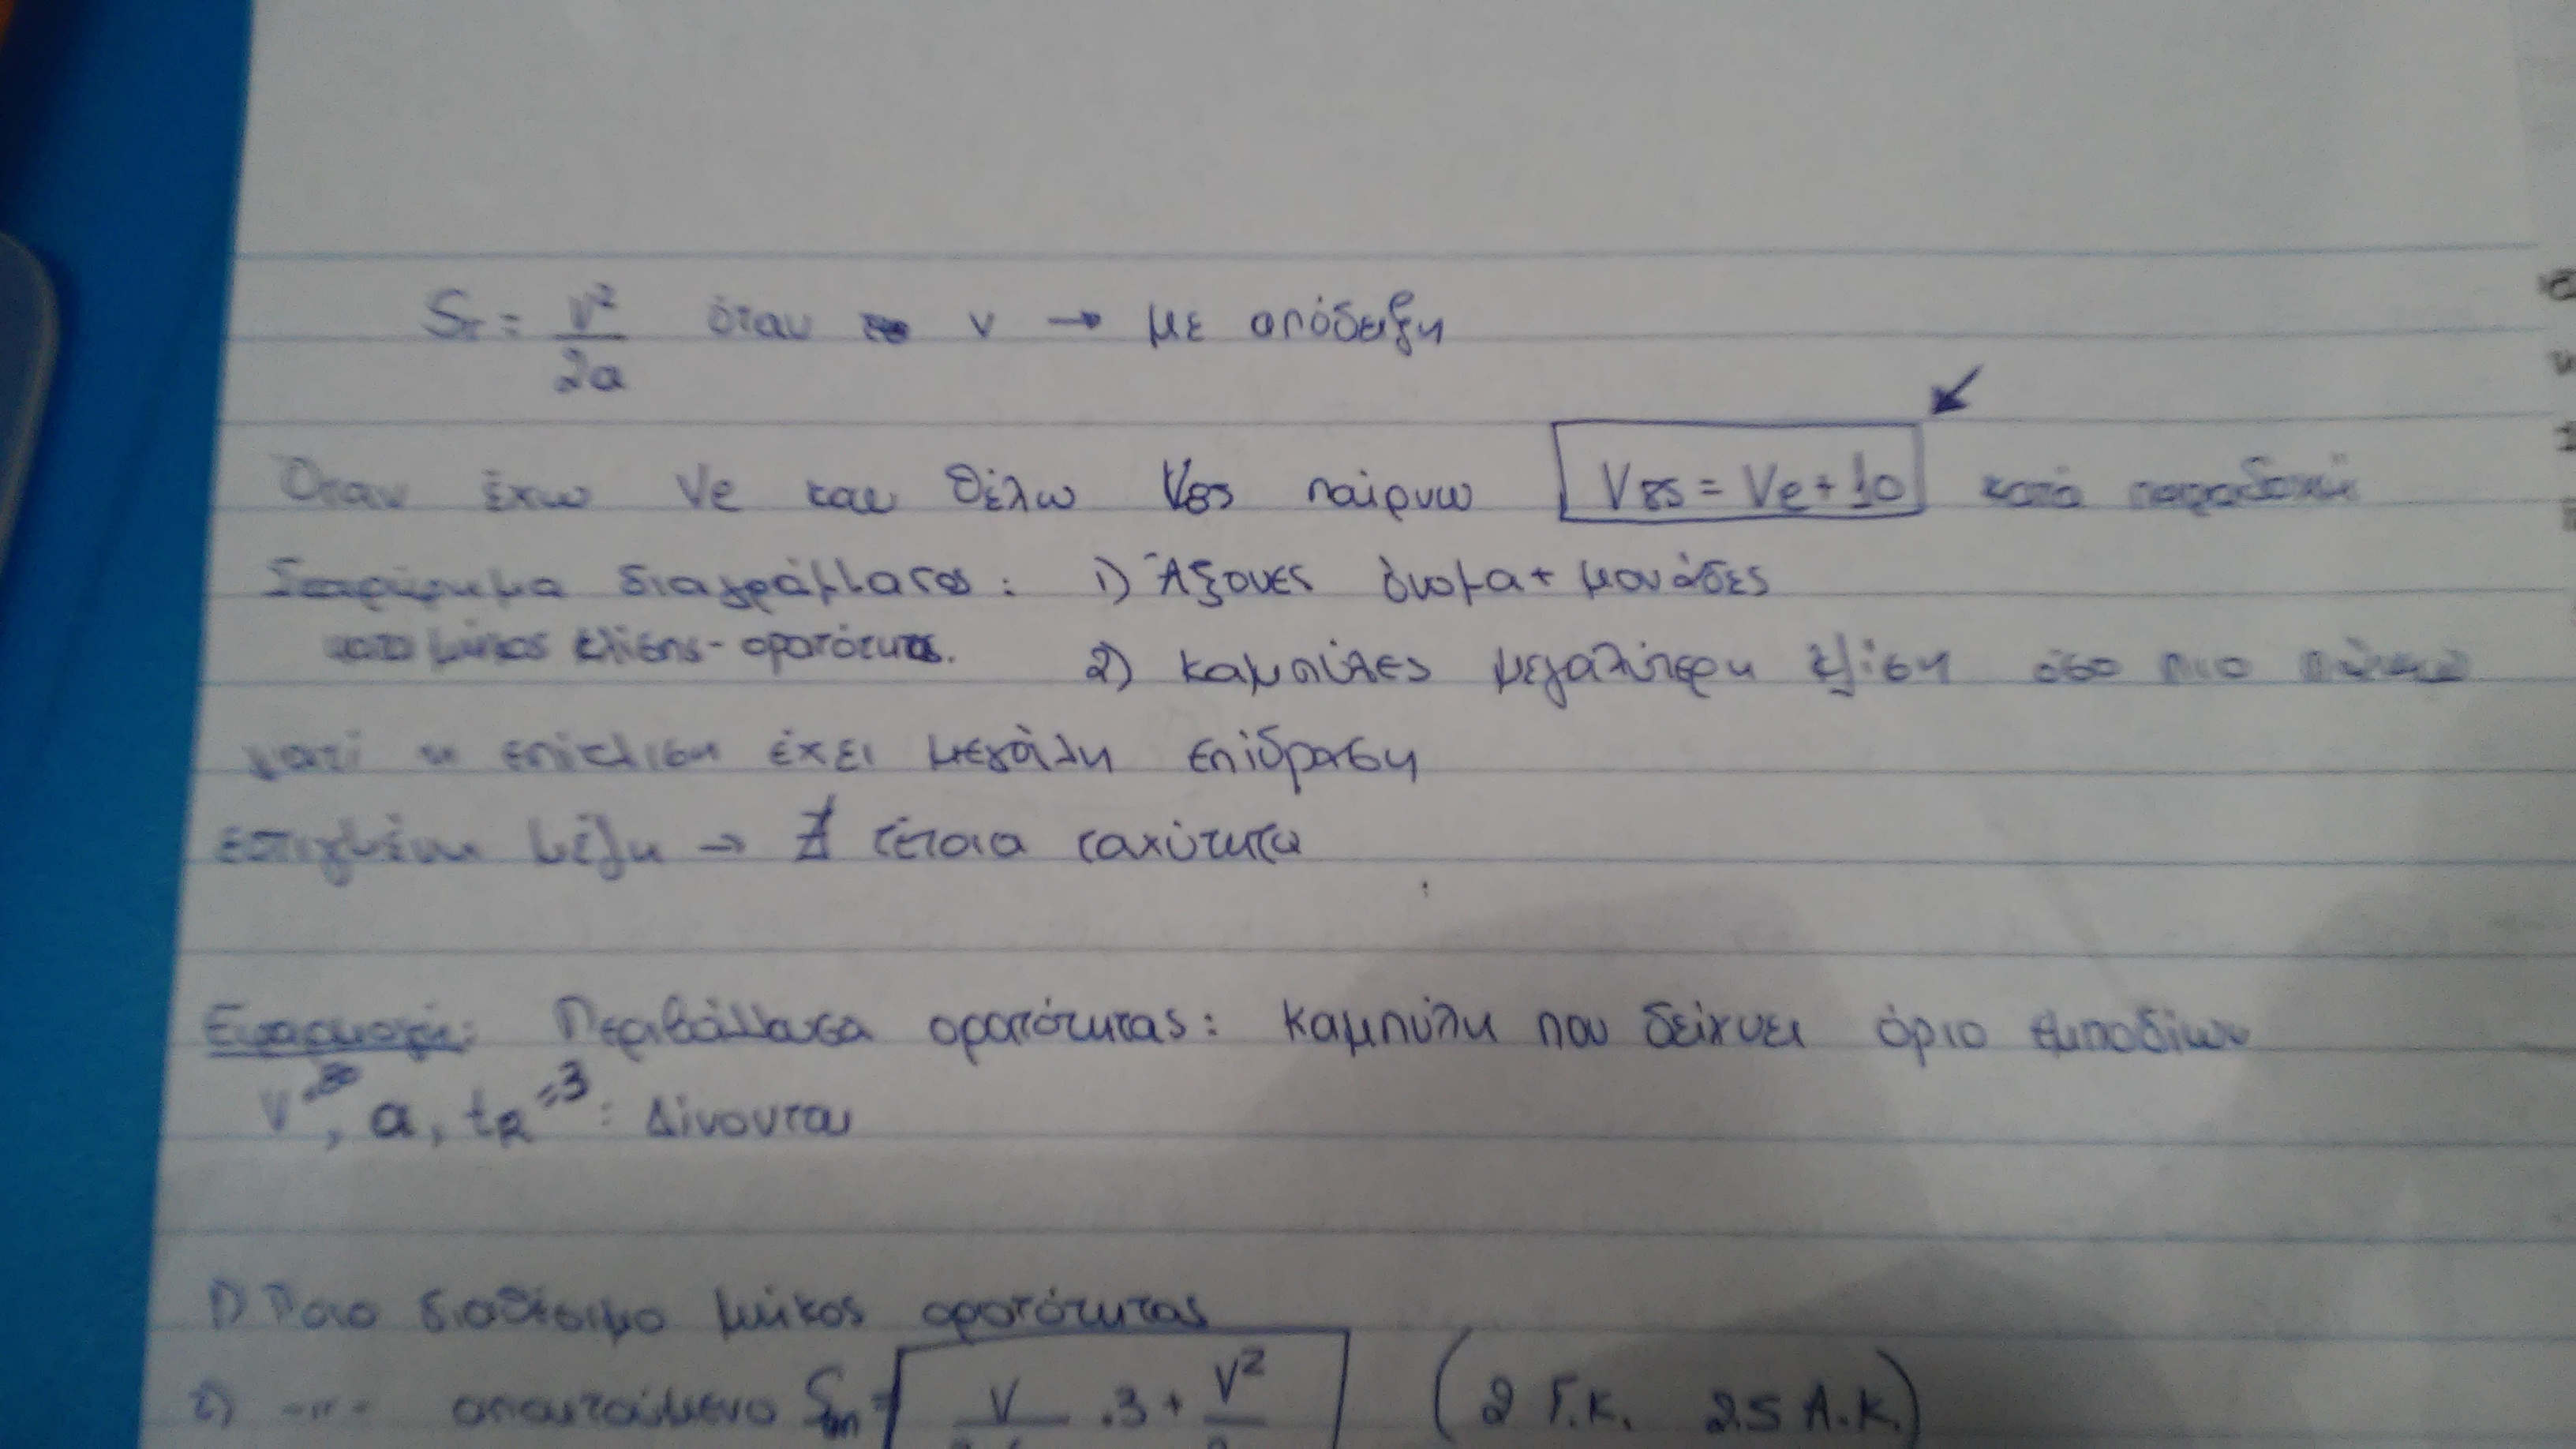 Sτ = V²/2a όταν v → με απόδειξη
Όταν έχω Ve και θέλω V85 παίρνω V85 = Ve + 10 κατά παραδοχή
διαγράμματος : 1) Άξονες όνομα + μονάδες
κατά μήκος κλίσης - ορατότητας. 2) καμπύλες μεγαλύτερη κλίση όσο πιο πάνω
γιατί η επίκλιση έχει μεγάλη επίδραση
→ ∄ τέτοια ταχύτητα
Εφαρμογή: Περιβάλλουσα ορατότητας : καμπύλη που δείχνει όριο εμποδίων
V=80, a, tR=3 : Δίνονται
1) Ποιο διαθέσιμο μήκος ορατότητας
2) -〃- απαιτούμενο = V .3 + V² (2 Γ.Κ. 2.5 Α.Κ.)